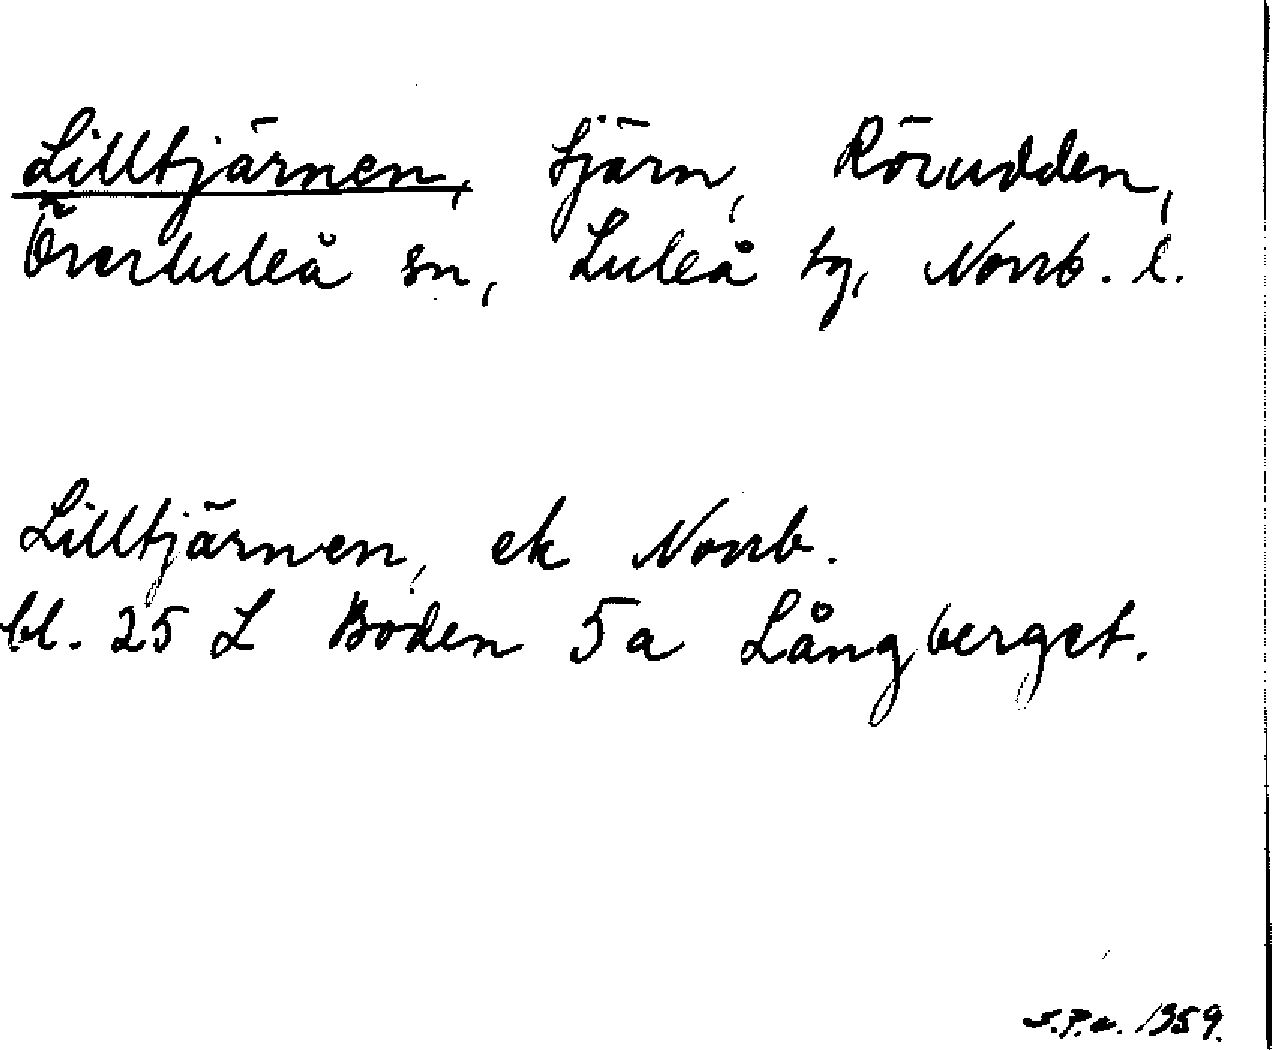 Lilltjärnen, tjärn, Rövudden,
Överluleå sn, Luleå tg, Norrb. l.
Lilltjärnen, ek Norrb.
bl. 25 L Boden 5a Långberget.
1359.